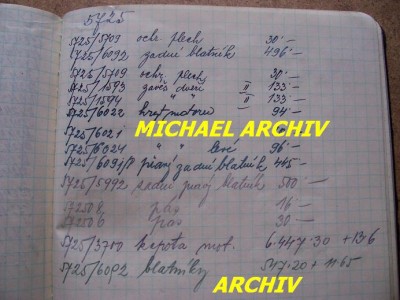 5725
5725/5709 ochr. plech 30·—
5725/6092 zadní blatník 496·—
5725/5709 ochr. plech 30·—
5725/1593 zavěs dveří II 133·—
5725/1594 " " II 133·—
5725/6022 kryt motoru 94·—
5725/6021
MICHAEL ARCHIV
5725/6024 " " levé 96·—
5725/6091/P pravý zadní blatník 445·—
5725/5992 zadní pravý blatník 500·—
pas 16·—
pas 30·—
5725/3700 kapota mot. 6.447·30 +136
5725/6092 blatníky 547·20 + 11·65
ARCHIV